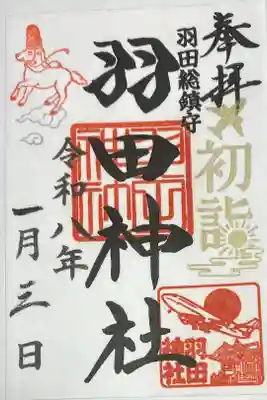 奉拝
羽田総鎮守
初詣
羽田神社
令和八年
一月三日
羽田
神社